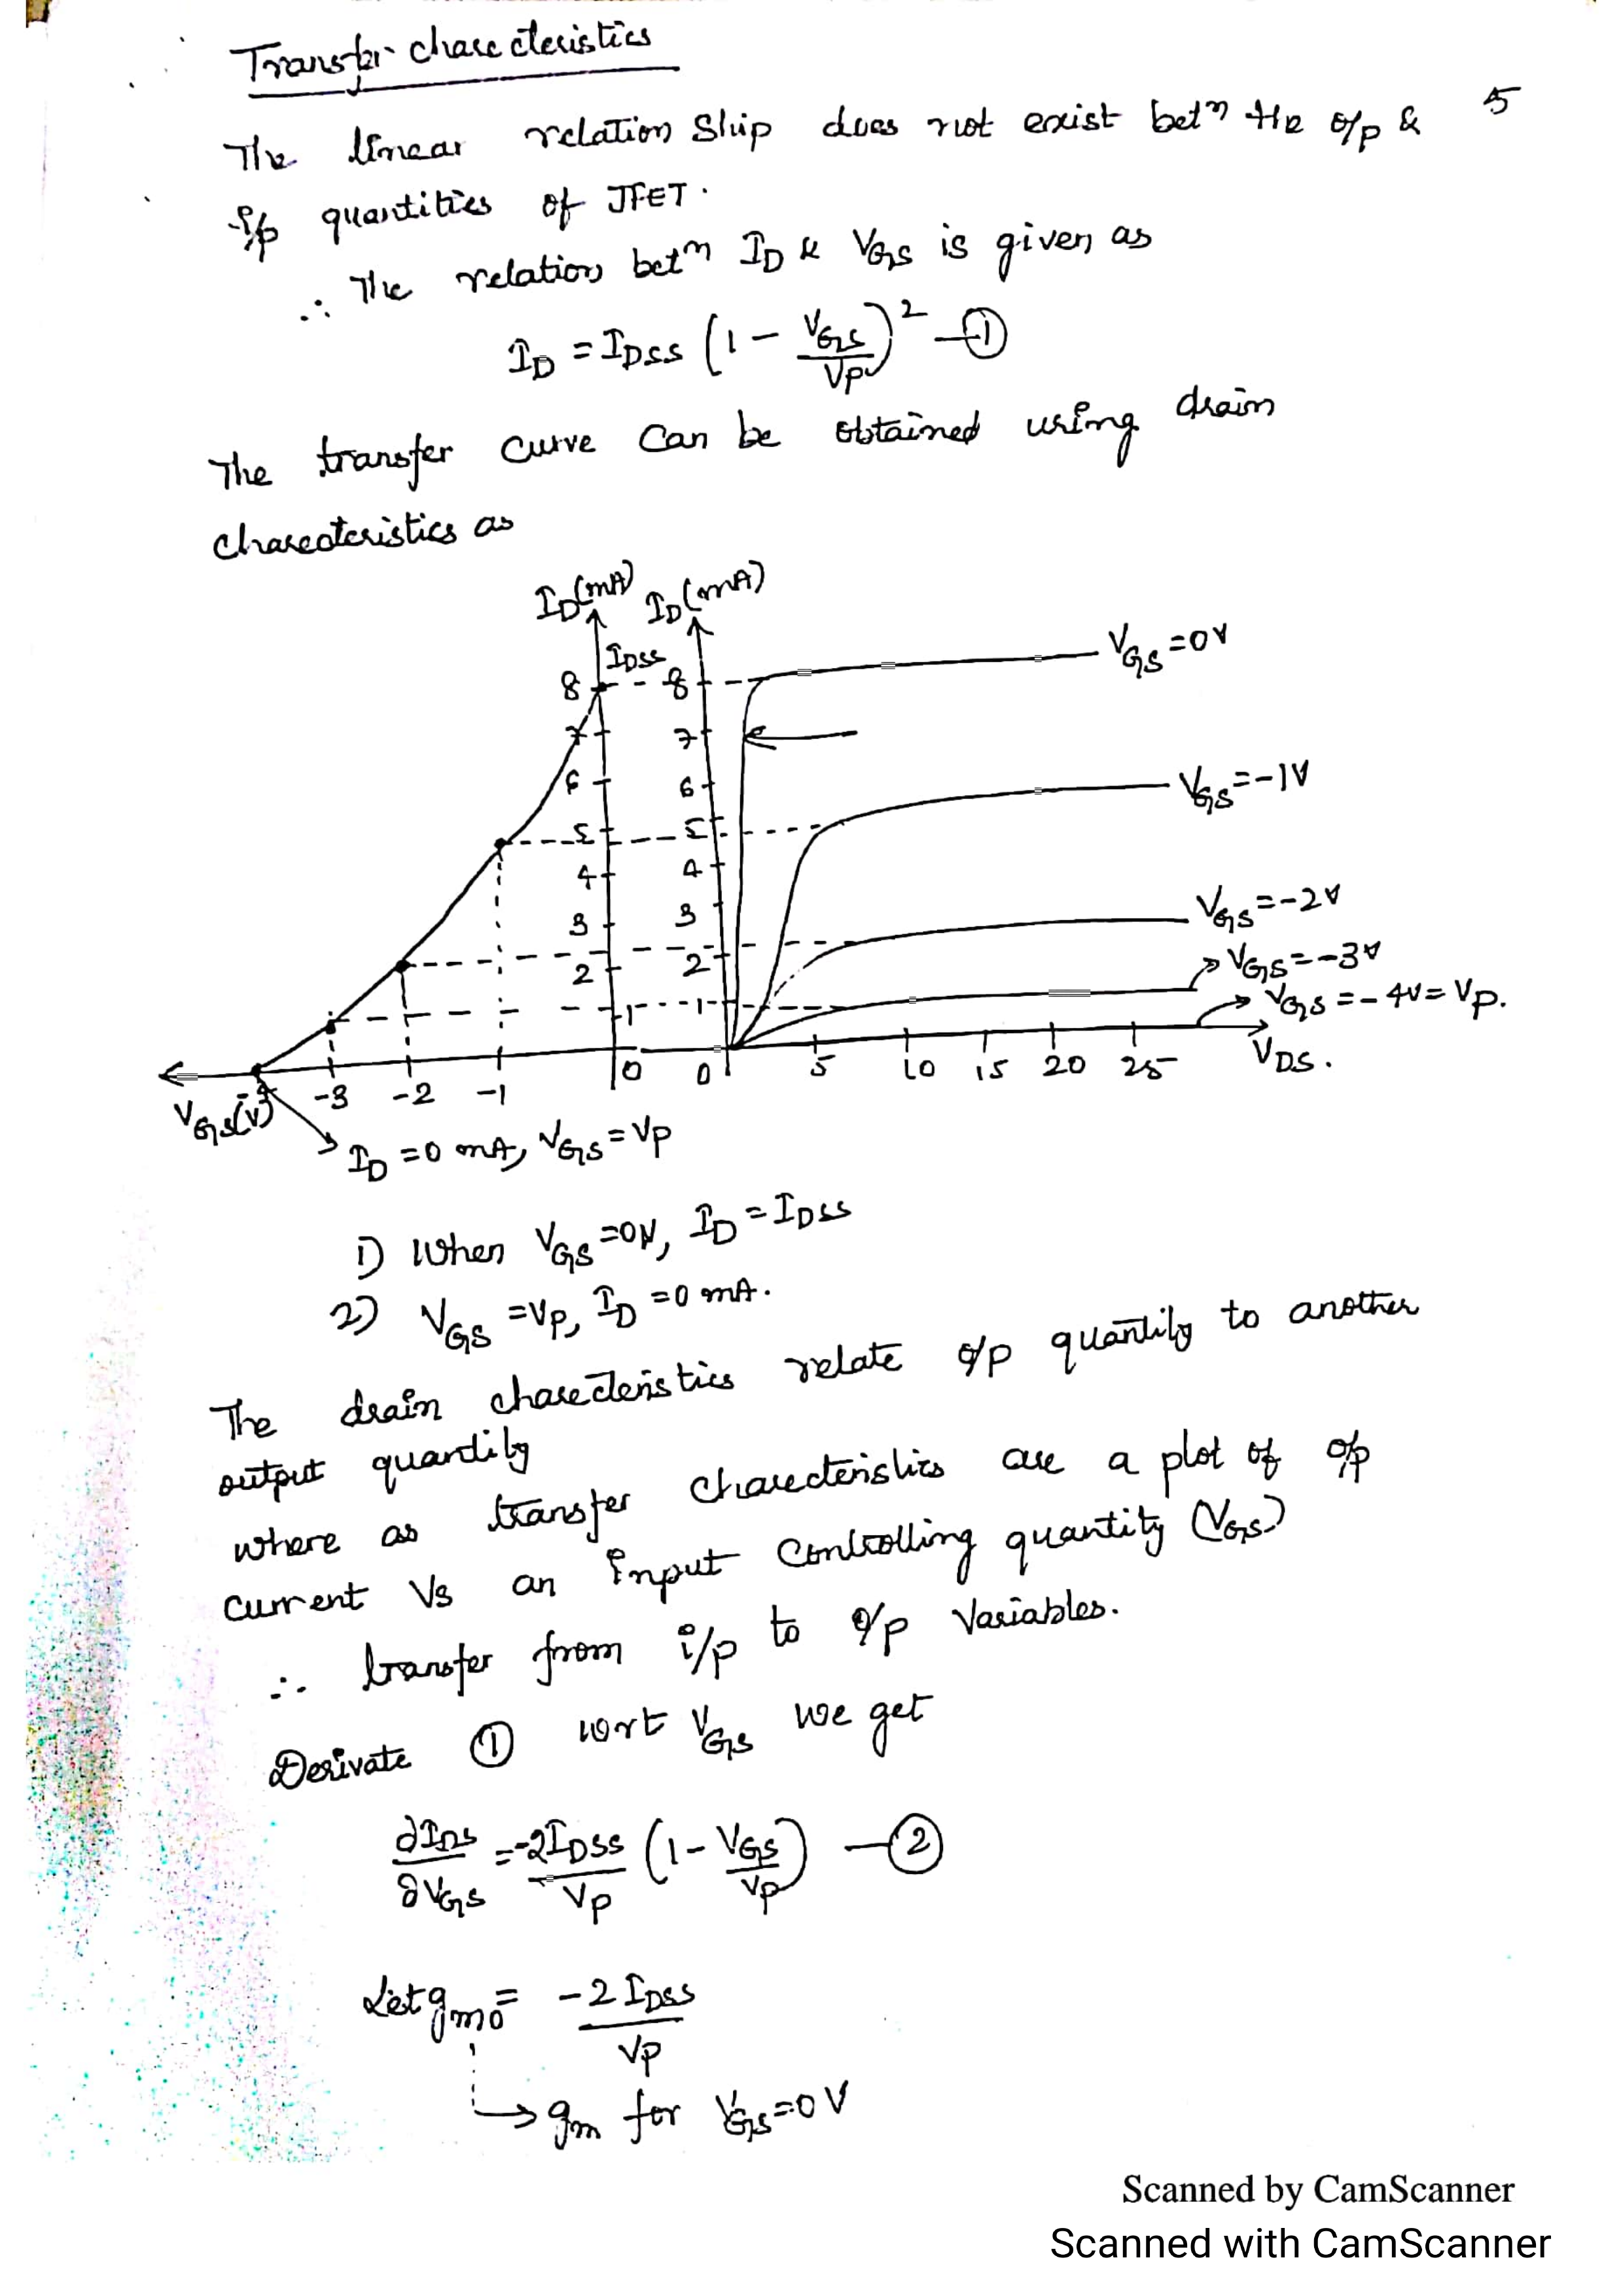 Transfer charecteristics
5
The linear relation Ship does not exist betn the o/p &
i/p quantities of JFET.
∴ The relation betn ID & VGS is given as
ID = IDSS (1 - VGS/VP)² — ①
The transfer curve can be obtained using drain
charecteristics as
ID(mA) ID(mA)
IDSS
8 8
7 7
6 6
5 5
4 4
3 3
2 2
1 1
VGS = 0V
VGS = -1V
VGS = -2V
VGS = -3V
VGS = -4V = VP.
VGS(V) -4 -3 -2 -1 0 0 5 10 15 20 25 VDS.
ID = 0 mA, VGS = VP
1) When VGS = 0V, ID = IDSS
2) VGS = VP, ID = 0 mA.
The drain charecteristics relate o/p quantity to another
output quantity
where as transfer charecteristics are a plot of o/p
current Vs an input controlling quantity (VGS)
∴ transfer from i/p to o/p variables.
Derivate ① wrt VGS we get
∂IDS/∂VGS = -2IDSS/VP (1 - VGS/VP) — ②
Let gmo = -2 IDSS/VP
→ gm for VGS = 0 V
Scanned by CamScanner
Scanned with CamScanner